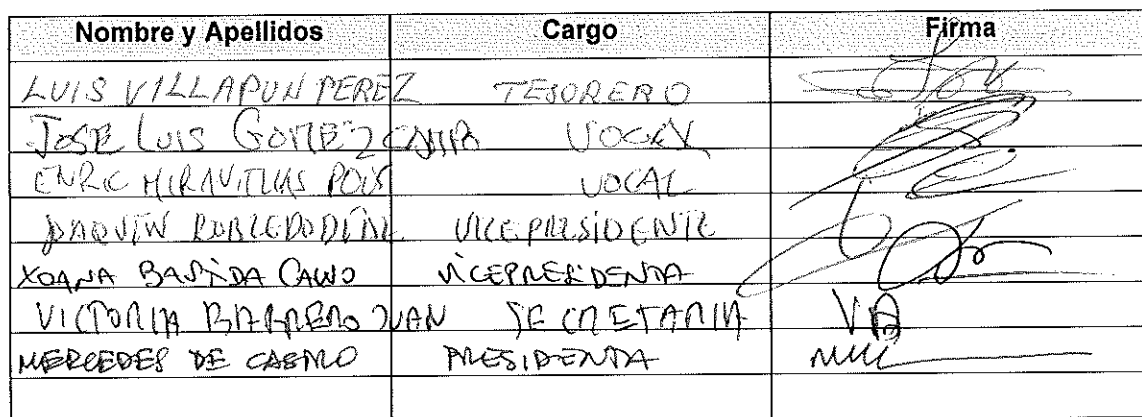 Nombre y Apellidos Cargo Firma
LUIS VILLAPUN PEREZ TESORERO
JOSE LUIS GOMEZ CAMPO VOCAL
ENRIC MIRAVITLLAS POUS VOCAL
JOAQUÍN ROBLEDO DÍAZ VICEPRESIDENTE
XOANA BASTIDA CALVO VICEPRESIDENTA
VICTORIA BARRERO JUAN SECRETARIA VB
MERCEDES DE CASTRO PRESIDENTA